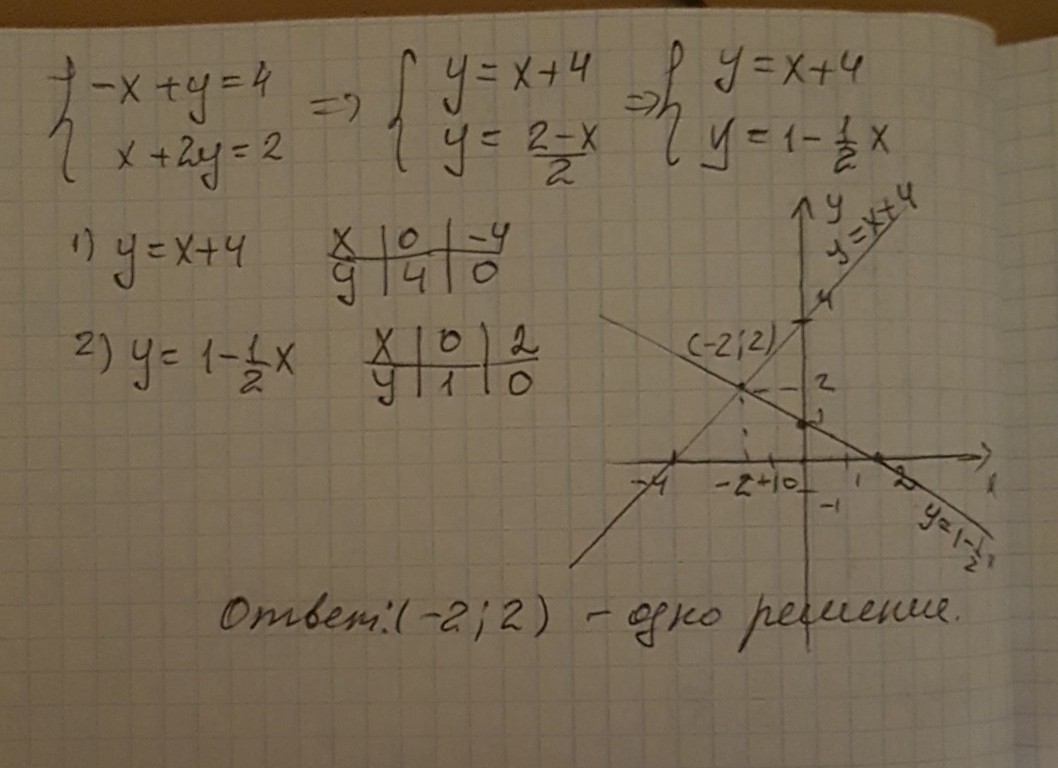 { -x + y = 4 => { y = x+4 => { y = x+4
x + 2y = 2 y = 2-x/2 y = 1 - 1/2 x
1) y = x+4 x | 0 | -4
y | 4 | 0
2) y = 1 - 1/2 x x | 0 | 2
y | 1 | 0
y
y = x+4
4
(-2; 2)
2
1
-4 -2 -1 0 1 2 x
-1
y = 1 - 1/2 x
Ответ: (-2; 2) - одно решение.